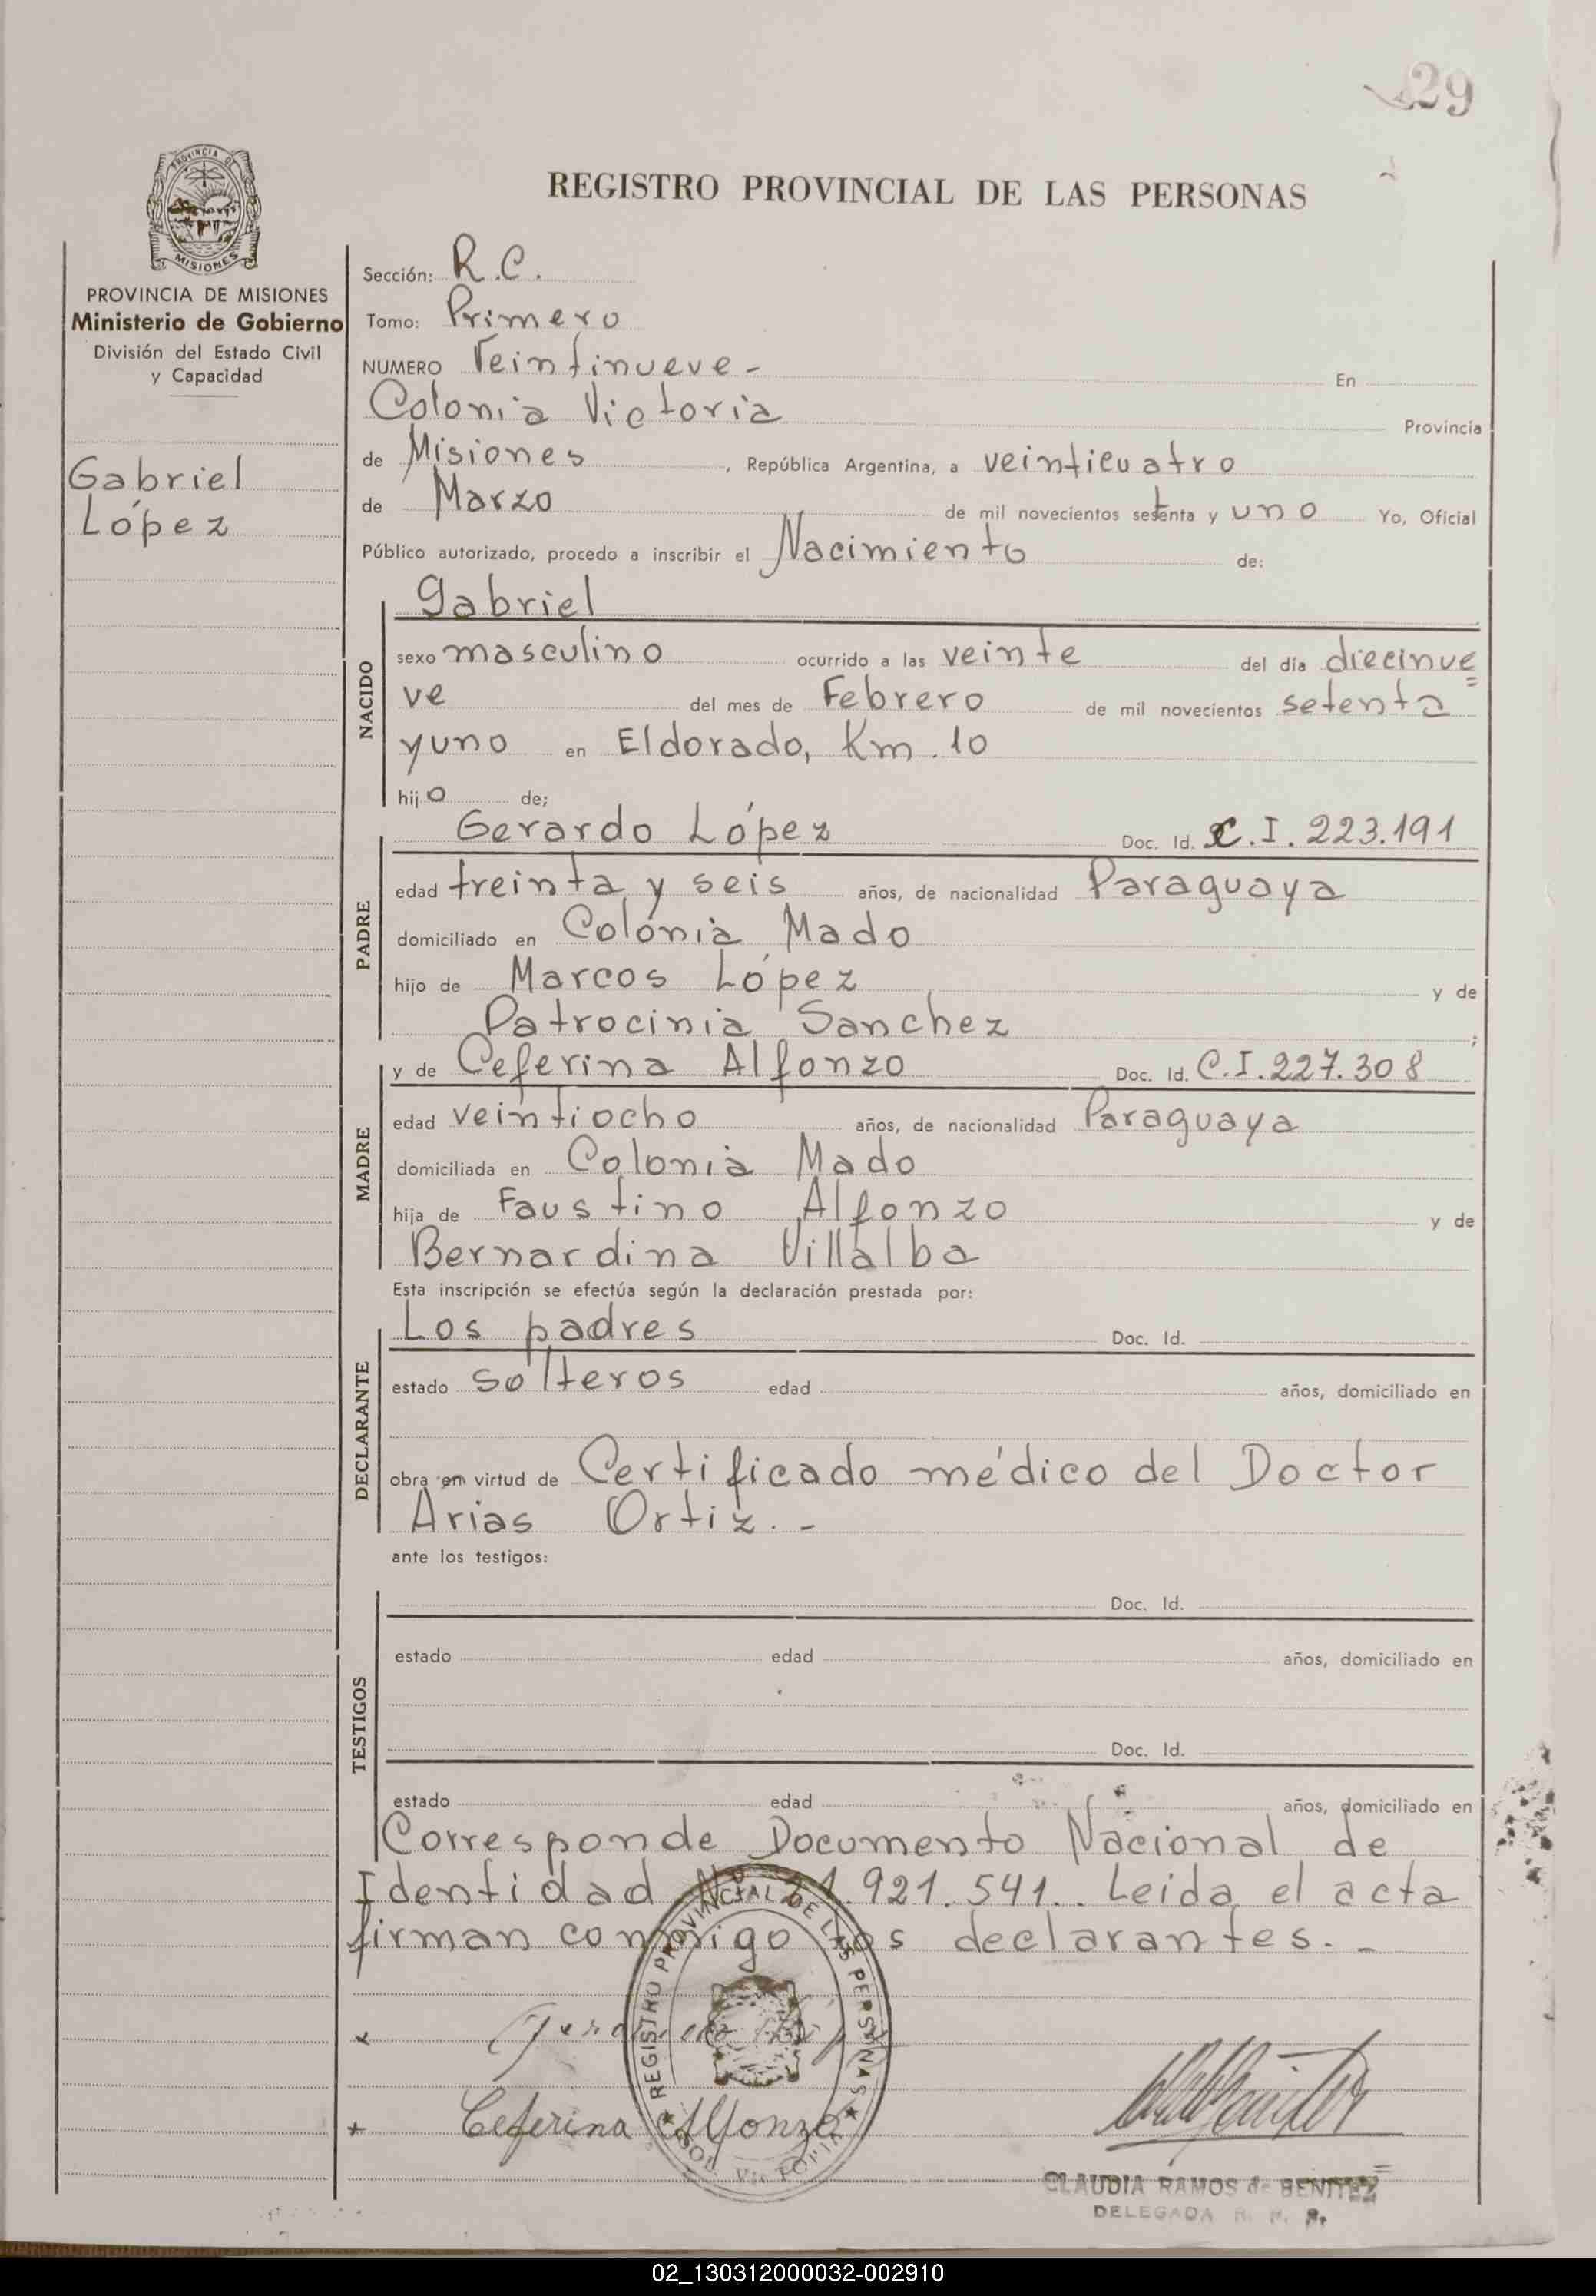 29
PROVINCIA DE
MISIONES
REGISTRO PROVINCIAL DE LAS PERSONAS
PROVINCIA DE MISIONES
Ministerio de Gobierno
División del Estado Civil
y Capacidad
Gabriel
López
Sección: R.C.
Tomo: Primero
NUMERO Veintinueve - En
Colonia Victoria Provincia
de Misiones, República Argentina, a veinticuatro
de Marzo de mil novecientos setenta y uno Yo, Oficial
Público autorizado, procedo a inscribir el Nacimiento de:
NACIDO
Gabriel
sexo masculino ocurrido a las veinte del día diecinue=
ve del mes de Febrero de mil novecientos setenta
y uno en Eldorado, Km. 10
hijo de;
PADRE
Gerardo López Doc. Id. C.I. 223.191
edad treinta y seis años, de nacionalidad Paraguaya
domiciliado en Colonia Mado
hijo de Marcos López y de
Patrocinia Sanchez ;
MADRE
y de Ceferina Alfonzo Doc. Id. C.I. 227.308
edad veintiocho años, de nacionalidad Paraguaya
domiciliada en Colonia Mado
hija de Faustino Alfonzo y de
Bernardina Villalba
Esta inscripción se efectúa según la declaración prestada por:
DECLARANTE
Los padres Doc. Id.
estado solteros edad años, domiciliado en
obra en virtud de Certificado médico del Doctor
Arias Ortiz. -
ante los testigos:
TESTIGOS
Doc. Id.
estado edad años, domiciliado en
Doc. Id.
estado edad años, domiciliado en
Corresponde Documento Nacional de
Identidad Nº 21.921.541.. Leida el acta
firman conmigo los declarantes. -
REGISTRO PROVINCIAL DE LAS PERSONAS
COL. VICTORIA
Gerardo López
Ceferina Alfonzo
CLAUDIA RAMOS de BENITEZ
DELEGADA R. P. P.
02_130312000032-002910